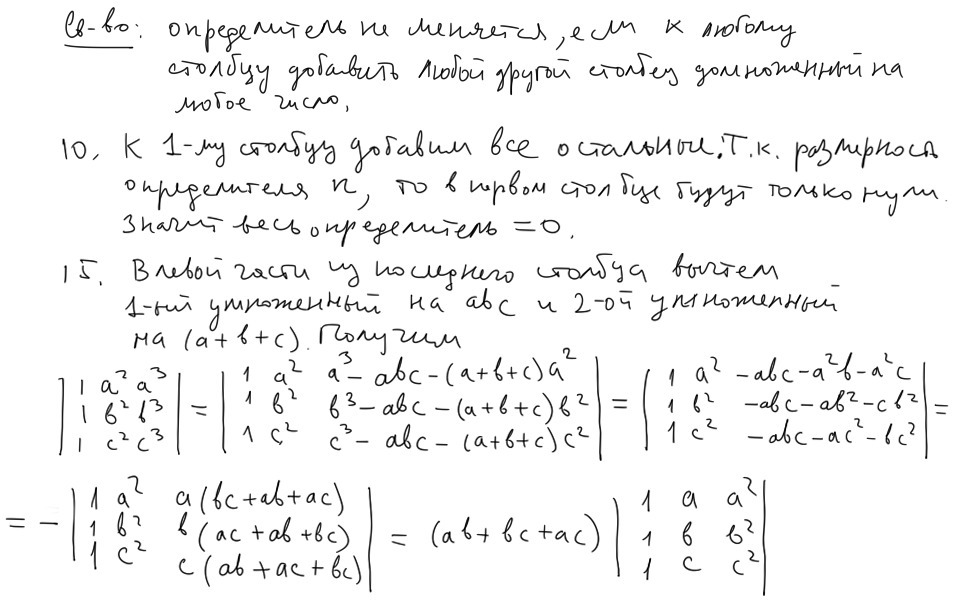 Св-во: определитель не меняется, если к любому
столбцу добавить любой другой столбец домноженный на
любое число.
10. К 1-му столбцу добавим все остальные. Т.к. размерность
определителя n, то в первом столбце будут только нули.
Значит весь определитель = 0.
15. В левой части из последнего столбца вычтем
1-ый умноженный на abc и 2-ой умноженный
на (a+b+c). Получим
|1 a² a³| = |1 a² a³ - abc - (a+b+c)a²| = |1 a² -abc - a²b - a²c| =
|1 b² b³| |1 b² b³ - abc - (a+b+c)b²| |1 b² -abc - ab² - cb²|
|1 c² c³| |1 c² c³ - abc - (a+b+c)c²| |1 c² -abc - ac² - bc²|
= - |1 a² a(bc+ab+ac)| = (ab+bc+ac) |1 a a²|
|1 b² b(ac+ab+bc)| |1 b b²|
|1 c² c(ab+ac+bc)| |1 c c²|